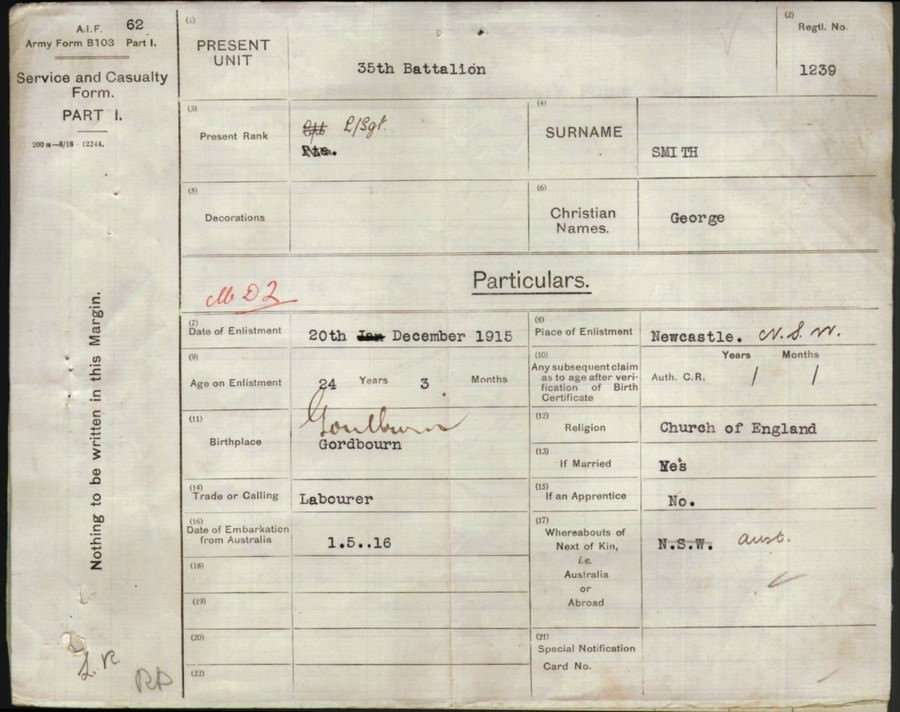 A.I.F. 62
Army Form B103 Part I.
Service and Casualty
Form.
PART I.
200 M—8/18—12244.
Nothing to be written in this Margin.
L.R
RP
(1)
PRESENT
UNIT
35th Battalion
(2)
Regtl. No.
1239
(3)
Present Rank
L/Sgt.
Pte.
(4)
SURNAME
SMITH
(5)
Decorations
(6)
Christian
Names.
George
Particulars.
MD2
(7)
Date of Enlistment
20th Jan December 1915
(8)
Place of Enlistment
Newcastle. N.S.W.
(9)
Age on Enlistment
24 Years 3 Months
(10)
Any subsequent claim
as to age after veri-
fication of Birth
Certificate
Years Months
Auth. C.R. / /
(11)
Birthplace
Goulburn
Gordbourn
(12)
Religion
Church of England
(13)
If Married
Yes
(14)
Trade or Calling
Labourer
(15)
If an Apprentice
No.
(16)
Date of Embarkation
from Australia
1.5..16
(17)
Whereabouts of
Next of Kin,
i.e.
Australia
or
Abroad
N.S.W. aust.
(18)
(19)
(20)
(21)
Special Notification
Card No.
(22)